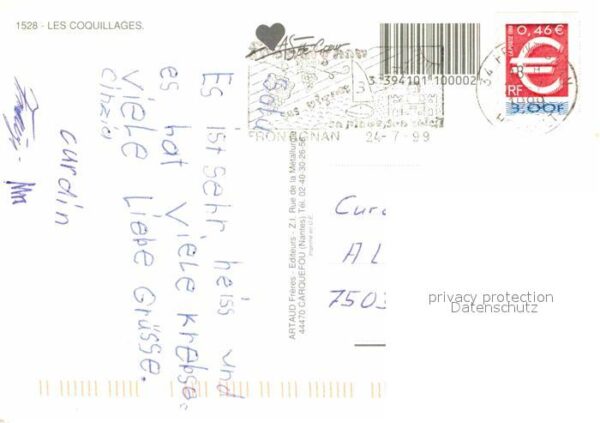 1528 - LES COQUILLAGES.
Es ist sehr heiss und
es hat viele Krebse.
Viele Liebe Grüsse.
curdin
3 394101 100002
FRONTIGNAN 24-7-99
0,46€
LA POSTE 1999
RF
3,00F
ARTAUD Frères - Editeurs - Z.I. Rue de la Métallurgie
44470 CARQUEFOU (Nantes) Tél. 02-40-30-26-56
Imprimé en U.E.
Cur
AL
7503
privacy protection
Datenschutz